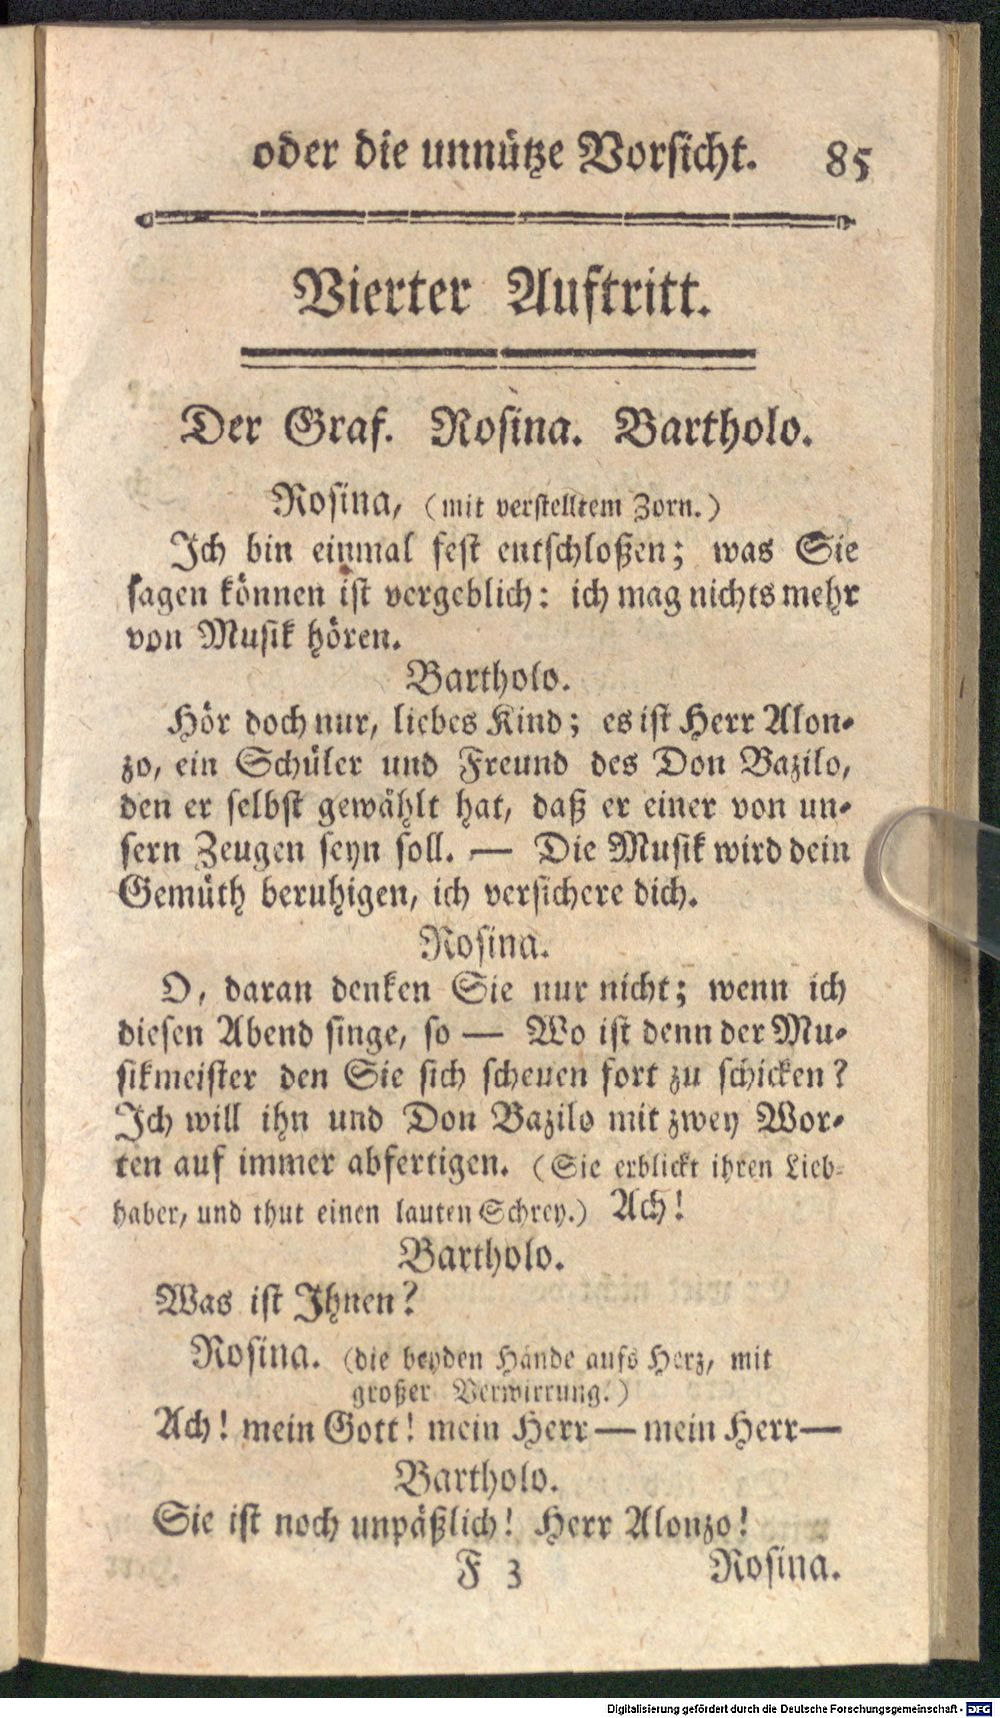 oder die unnütze Vorsicht. 85
Vierter Auftritt.
Der Graf. Rosina. Bartholo.
Rosina, (mit verstelltem Zorn.)
Ich bin einmal fest entschloßen; was Sie
sagen können ist vergeblich: ich mag nichts mehr
von Musik hören.
Bartholo.
Hör doch nur, liebes Kind; es ist Herr Alon-
zo, ein Schüler und Freund des Don Bazilo,
den er selbst gewählt hat, daß er einer von un-
sern Zeugen seyn soll. — Die Musik wird dein
Gemüth beruhigen, ich versichere dich.
Rosina.
O, daran denken Sie nur nicht; wenn ich
diesen Abend singe, so — Wo ist denn der Mu-
sikmeister den Sie sich scheuen fort zu schicken?
Ich will ihn und Don Bazilo mit zwey Wor-
ten auf immer abfertigen. (Sie erblickt ihren Lieb-
haber, und thut einen lauten Schrey.) Ach!
Bartholo.
Was ist Ihnen?
Rosina. (die beyden Hände aufs Herz, mit
großer Verwirrung.)
Ach! mein Gott! mein Herr — mein Herr —
Bartholo.
Sie ist noch unpäßlich! Herr Alonzo!
F 3 Rosina.
Digitalisierung gefördert durch die Deutsche Forschungsgemeinschaft - DFG